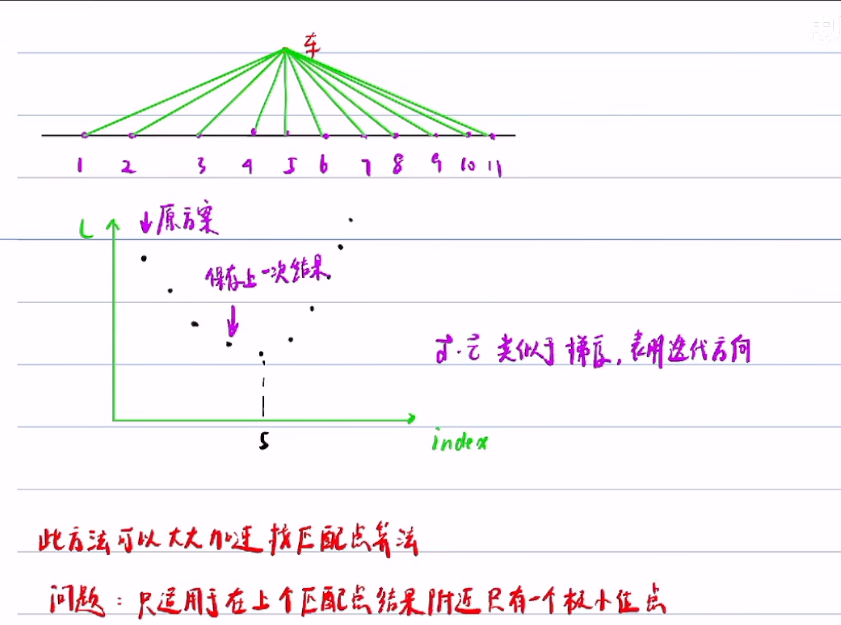 车
1 2 3 4 5 6 7 8 9 10 11
L ↓原方案
保存上一次结果
↓
d⃗·τ⃗ 类似于梯度,表明迭代方向
5 index
此方法可以大大加速找匹配点算法
问题:只适用于在上个匹配点结果附近只有一个极小值点